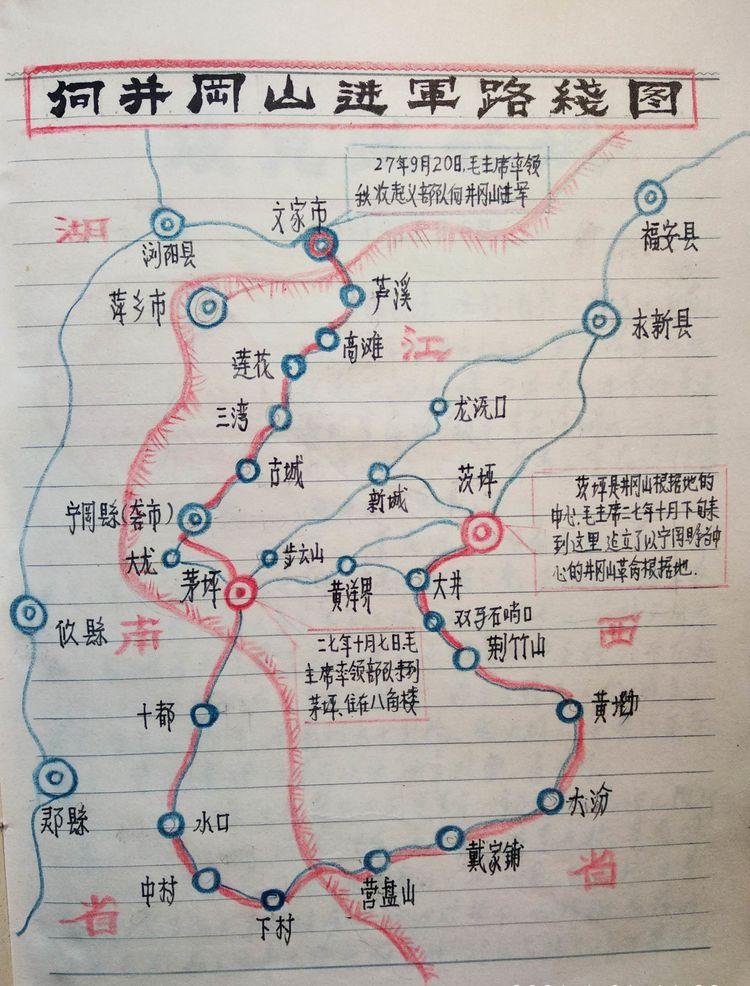 向井岡山进軍路綫图
27年9月20日,毛主席率领
秋收起义部队向井冈山进军
文家市
湖
浏阳县
福安县
萍乡市
芦溪
永新县
江
高滩
莲花
三湾
龙沅口
古城
新城
茨坪
茨坪是井冈山根据地的
中心,毛主席二七年十月下旬来
到这里,建立了以宁冈县为中
心的井冈山革命根据地.
宁岡縣(砻市)
大龙
步云山
茅坪
黄洋界
大井
双马石哨口
攸縣
南
西
荆竹山
二七年十月七日,毛
主席率领部队来到
茅坪、住在八角楼
十都
黄坳
酃縣
水口
大汾
戴家铺
中村
营盘山
省
省
下村